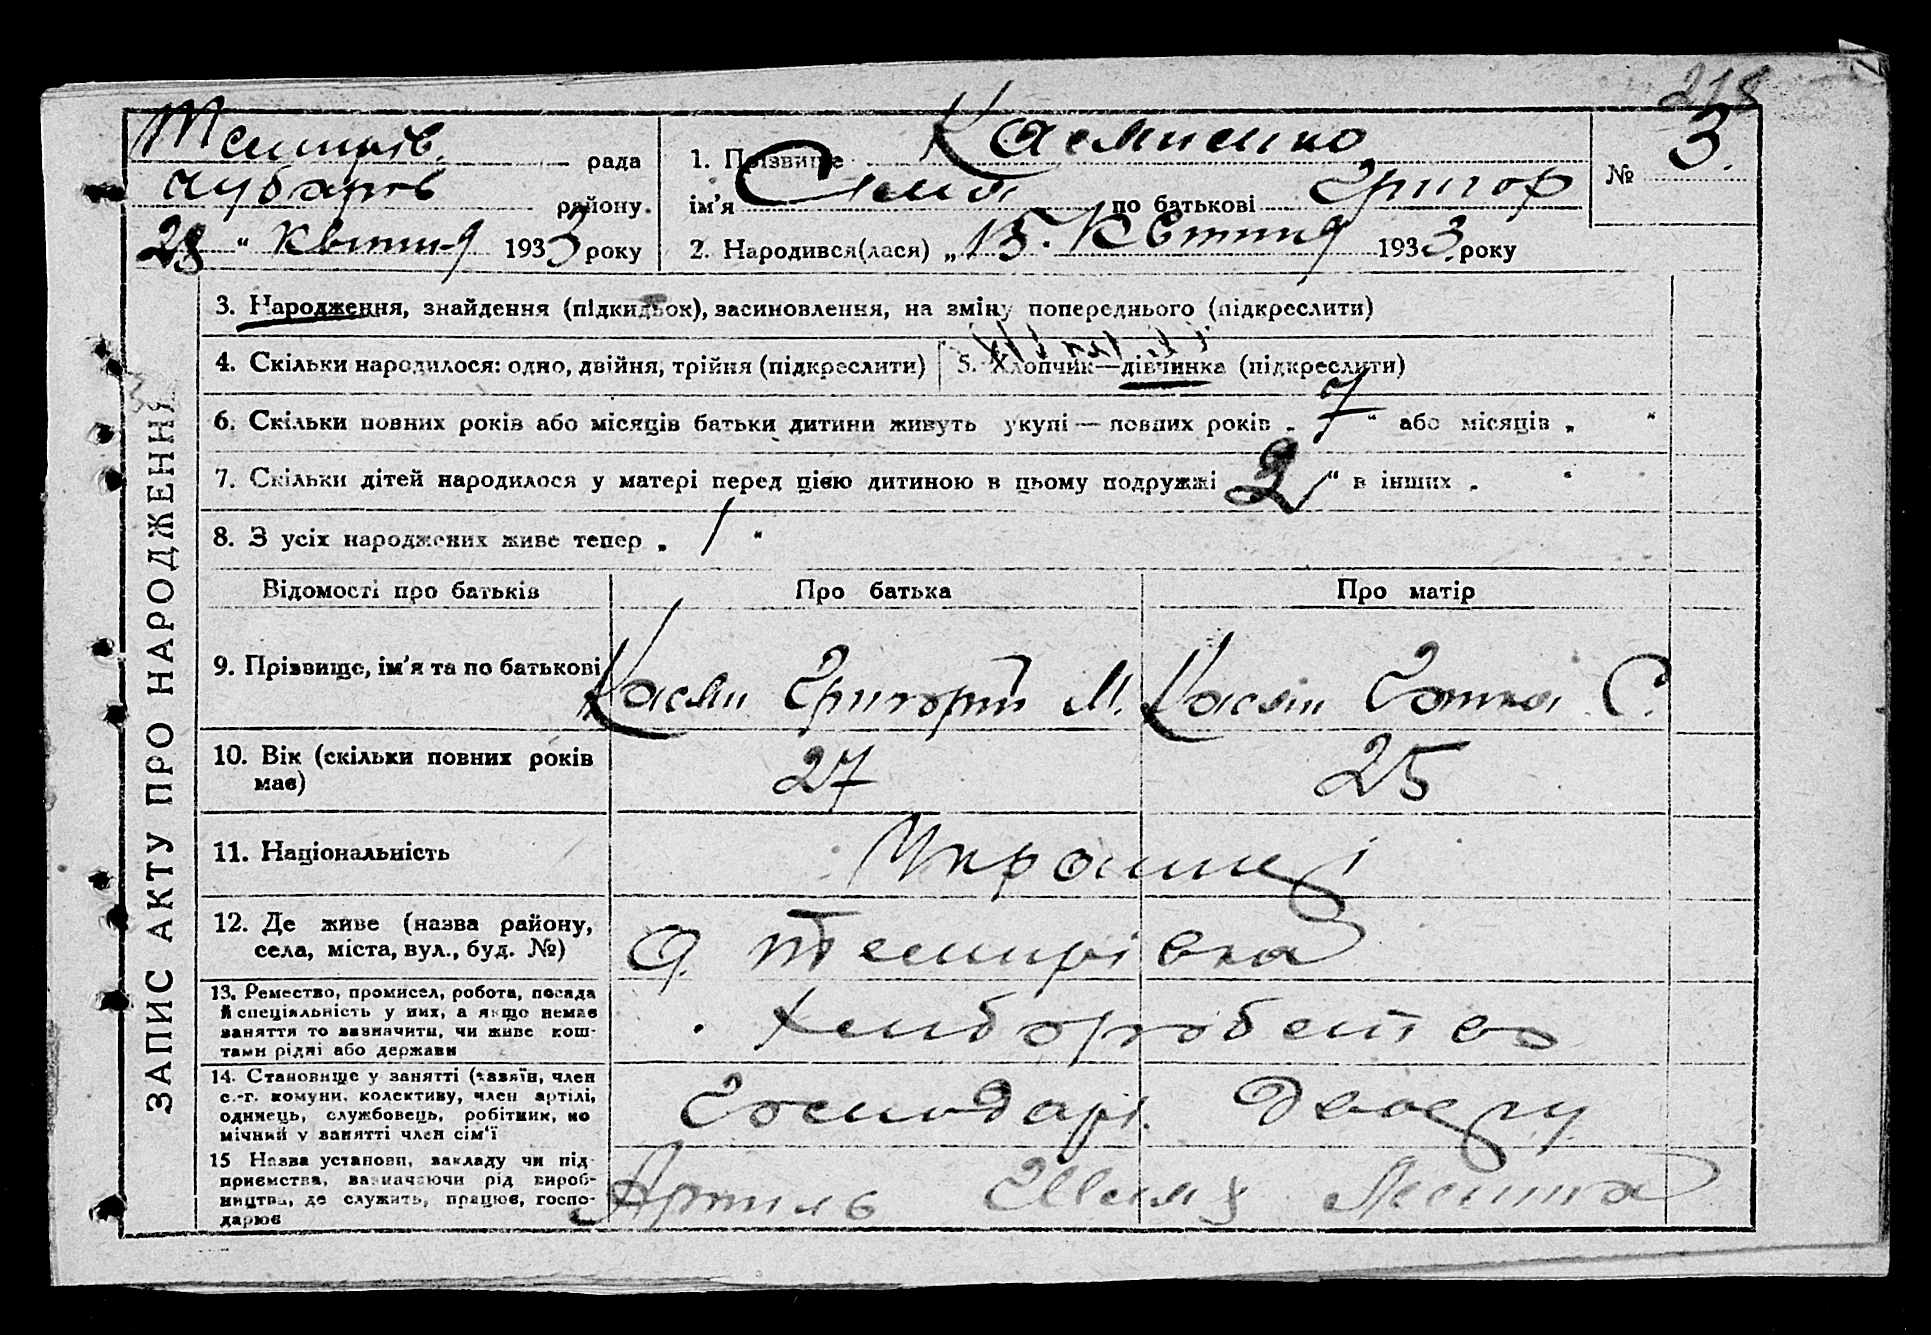 218
Темирів. рада
Чубарів району.
28 " Квітня 1933 року
1. Прізвище Касмиенко
ім'я по батькові Григор
№ 3.
2. Народився(лася) „15. Квітня 1933 року
3. Народження, знайдення (підкидьок), засиновлення, на зміну попереднього (підкреслити)
4. Скільки народилося: одно, двійня, трійня (підкреслити)
5. Хлопчик—дівчинка (підкреслити)
6. Скільки повних років або місяців батьки дитини живуть укупі — повних років „ 7 “ або місяців „ “
7. Скільки дітей народилося у матері перед цією дитиною в цьому подружжі 2 “ в інших „ “
8. З усіх народжених живе тепер „ 1 “
ЗАПИС АКТУ ПРО НАРОДЖЕННЯ
Відомості про батьків Про батька Про матір
9. Прізвище, ім'я та по батькові Касми Григорій М. Касми С.
10. Вік (скільки повних років має) 27 25
11. Національність Українці
12. Де живе (назва району, села, міста, вул., буд. №) с. Темирівка
13. Ремество, промисел, робота, посада
й спеціяльність у них, а якщо немає
заняття то зазначити, чи живе кош-
тами рідні або держави
Хлиборобство
14. Становище у занятті (хазяїн, член
с.-г. комуни, колективу, член артілі,
одинець, службовець, робітник, по
мічний у занятті член сім'ї
Господарі. Двору
15 Назва установи, закладу чи під-
приємства, зазначаючи рід вироб-
ництва, де служить, працює, госпо-
дарює
Артиль Леніна